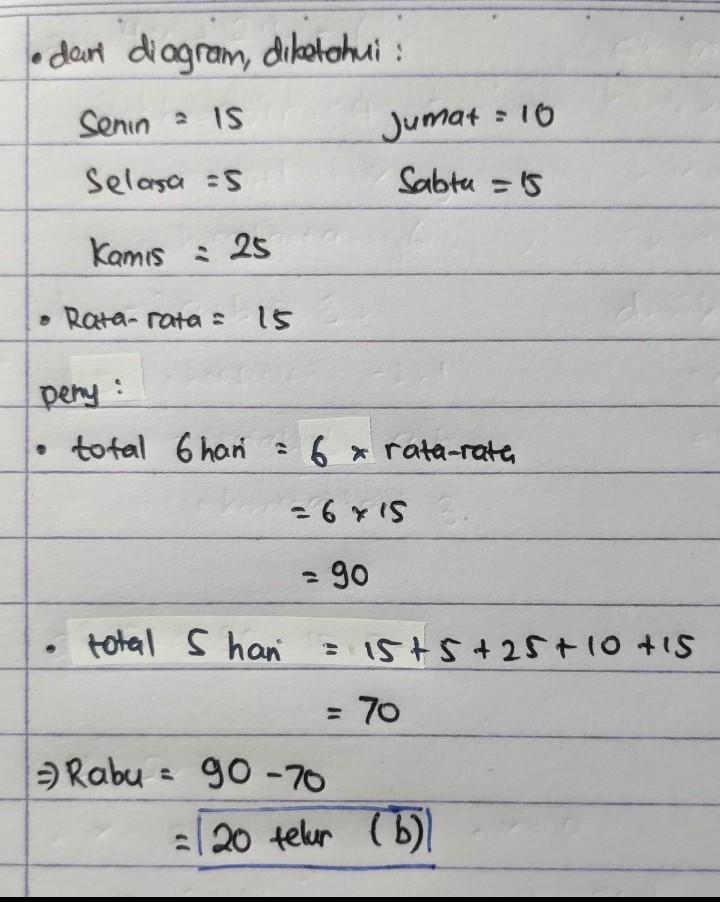 • dari diagram, diketahui :
Senin = 15 Jumat = 10
Selasa = 5 Sabtu = 15
Kamis = 25
• Rata-rata = 15
peny :
• total 6 hari = 6 × rata-rata
= 6 × 15
= 90
• total 5 hari = 15 + 5 + 25 + 10 + 15
= 70
⇒ Rabu = 90 - 70
= 20 telur (b)